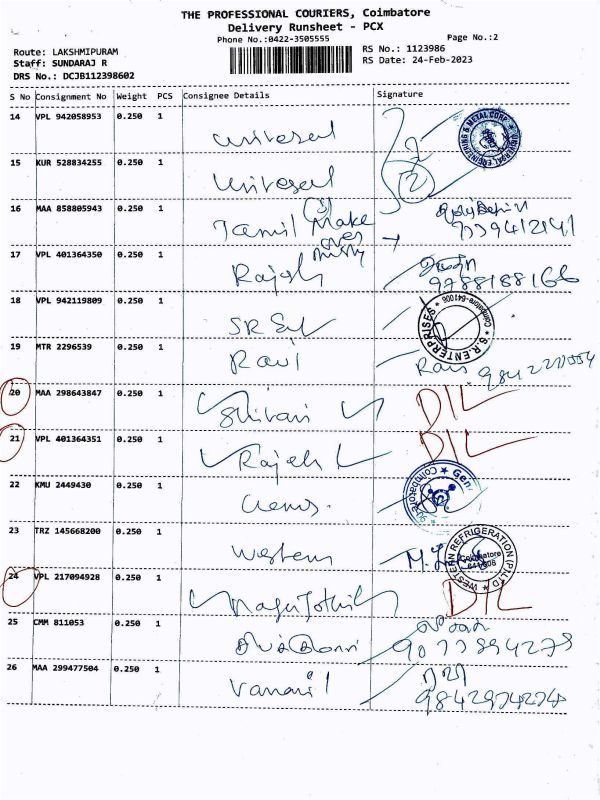 THE PROFESSIONAL COURIERS, Coimbatore
Delivery Runsheet - PCX
Phone No.:0422-3505555
Page No.:2
Route: LAKSHMIPURAM
RS No.: 1123986
Staff: SUNDARAJ R
RS Date: 24-Feb-2023
DRS No.: DCJB112398602
S No Consignment No Weight PCS Consignee Details Signature
14 VPL 942058953 0.250 1 Universal
UNIVERSAL ENGINEERING & METAL CORP.
15 KUR 528834255 0.250 1 Universal 2
16 MAA 858805943 0.250 1 Tamil Make 7339412141
over
17 VPL 401364350 0.250 1 Rajesh 9788188166
18 VPL 942119809 0.250 1 SR
S.R.ENTERPRISES * Coimbatore-641006 *
19 MTR 2296539 0.250 1 Ravi Ravi
20 MAA 298643847 0.250 1 Shivani DIL
21 VPL 401364351 0.250 1 Rajesh DIL
22 KMU 2449430 0.250 1
23 TRZ 145668200 0.250 1 Western
WESTERN REFRIGERATION (P) LTD
Coimbatore
24 VPL 217094928 0.250 1 DIL
25 CMM 811053 0.250 1
26 MAA 299477504 0.250 1